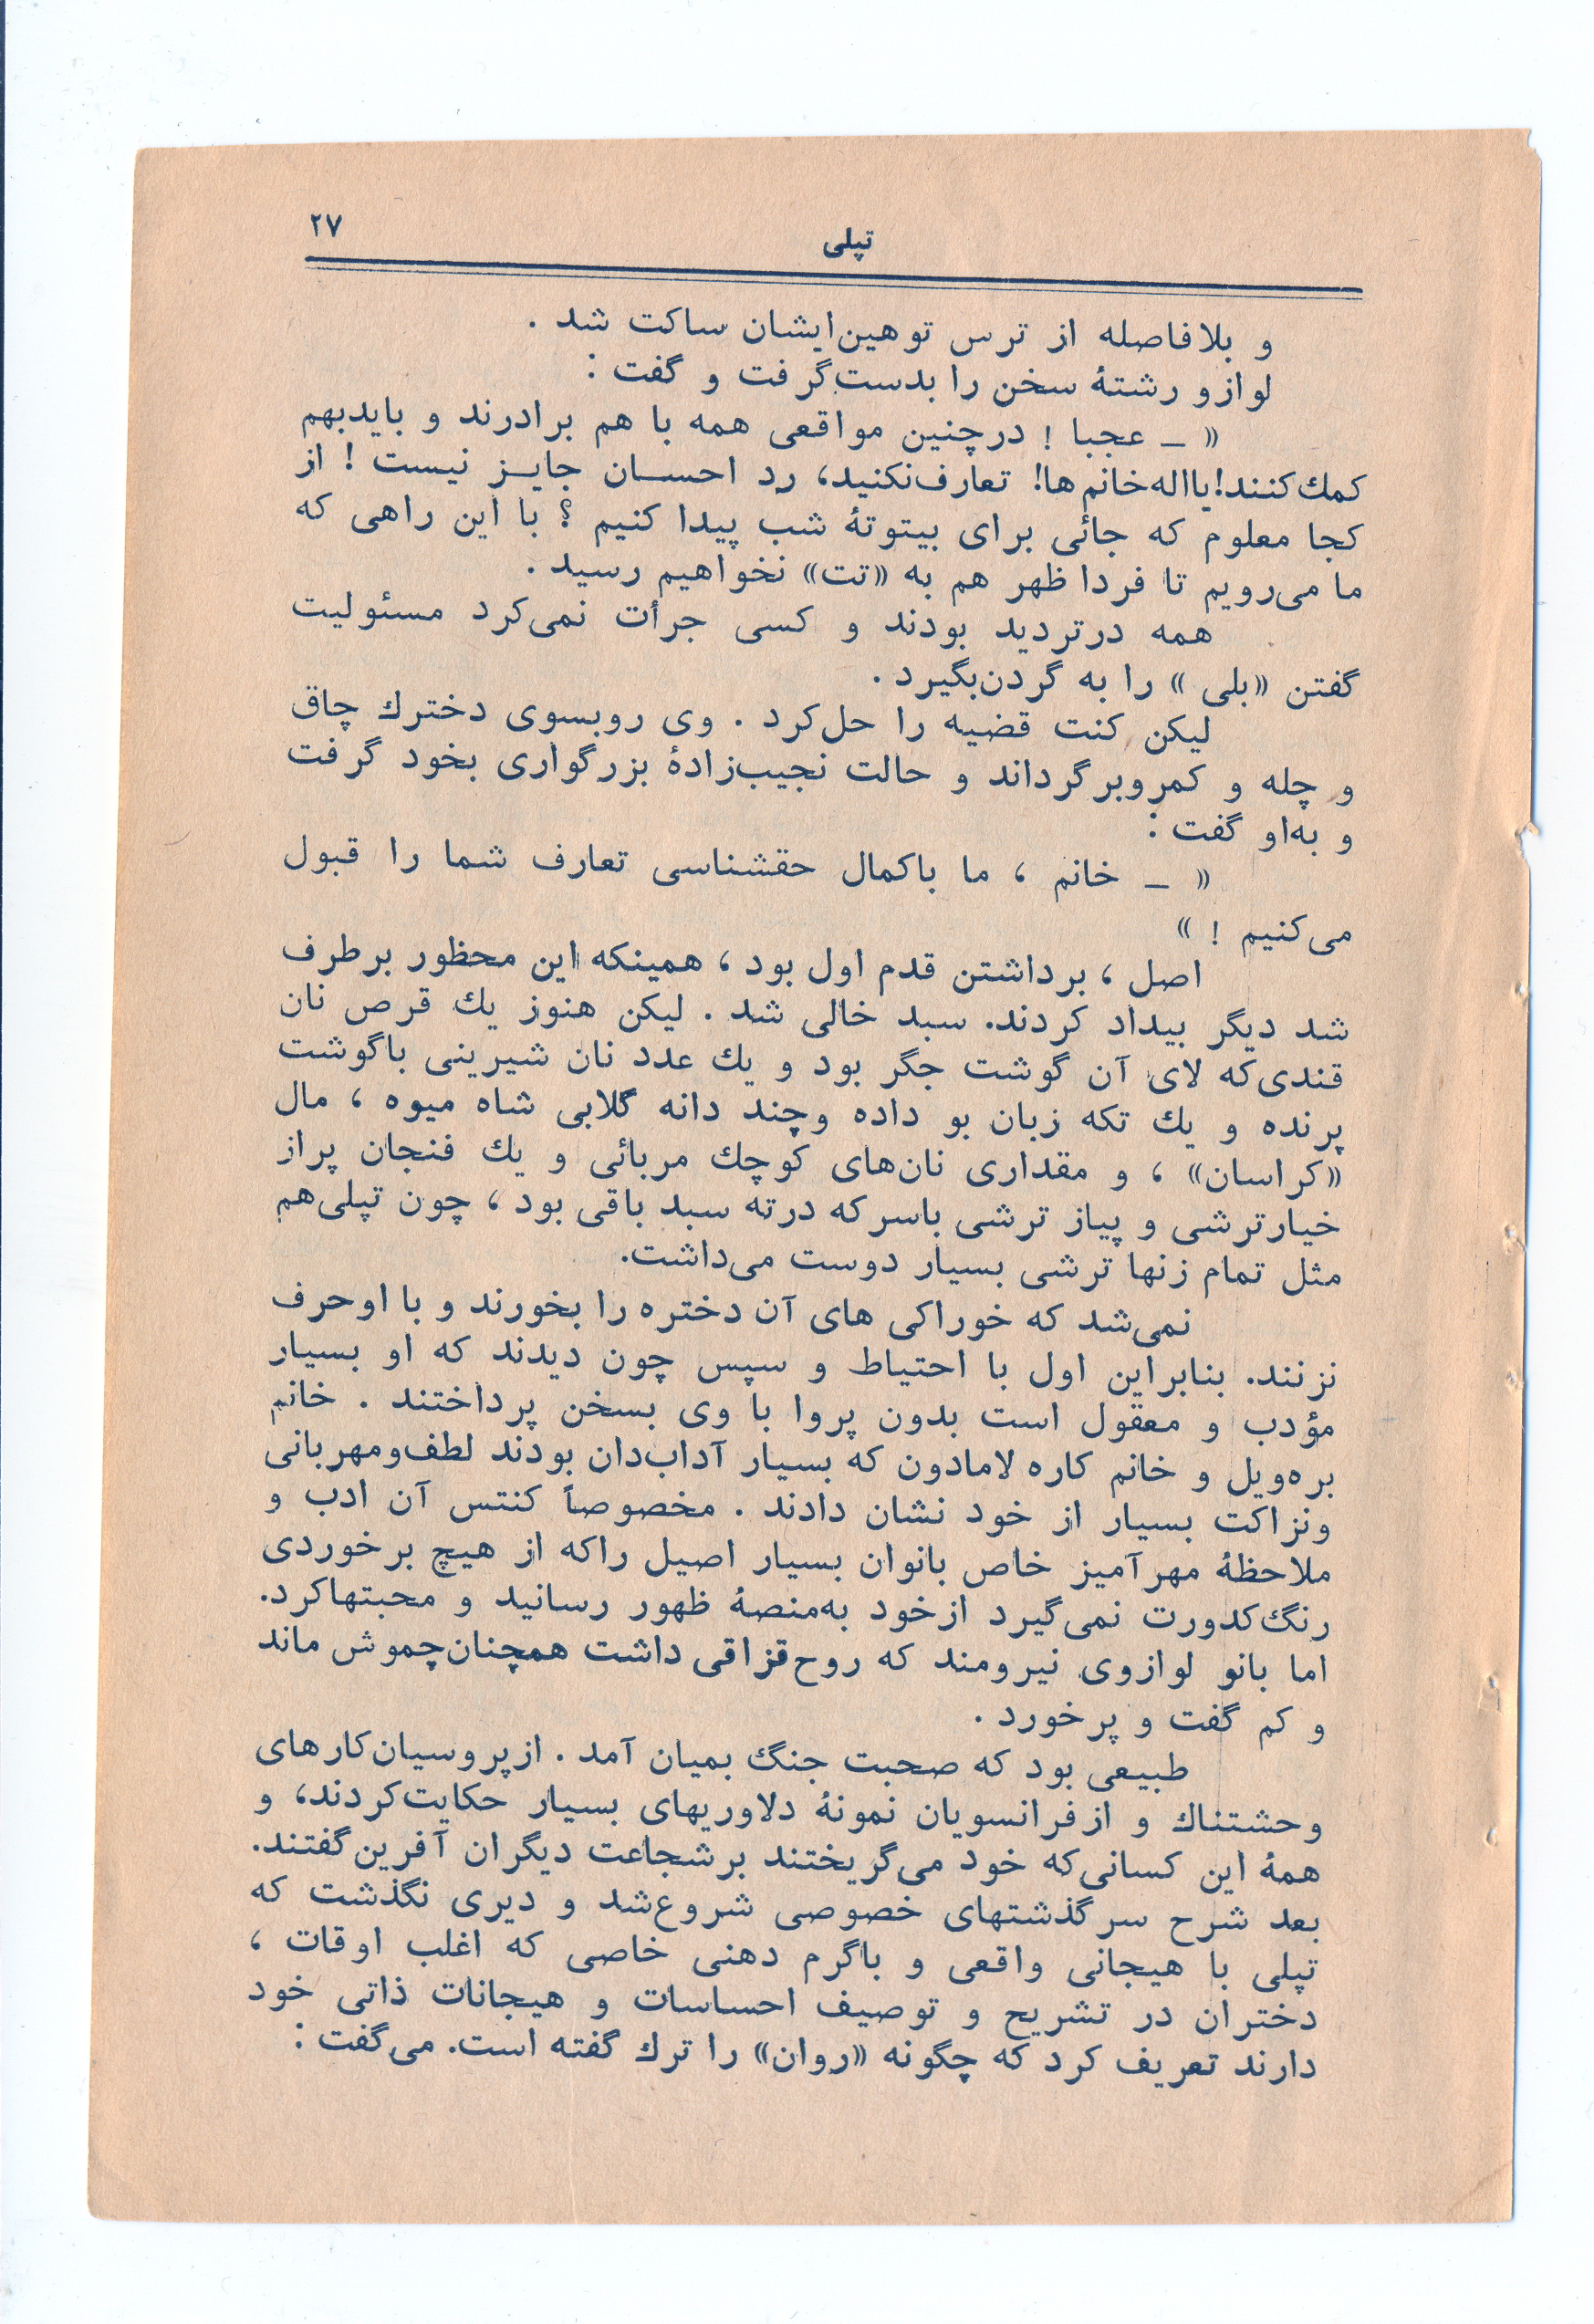 تپلی
۲۷
و بلافاصله از ترس توهین‌ایشان ساکت شد .
لوازو رشتهٔ سخن را بدست‌گرفت و گفت :
« – عجبا ! درچنین مواقعی همه با هم برادرند و بایدبهم
کمك‌کنند!یااله‌خانم‌ها! تعارف‌نکنید، رد احسان جایز نیست ! از
کجا معلوم که جائی برای بیتوتهٔ شب پیدا کنیم ؟ با این راهی که
ما می‌رویم تا فردا ظهر هم به «تت» نخواهیم رسید .
همه درتردید بودند و کسی جرأت نمی‌کرد مسئولیت
گفتن «بلی » را به گردن‌بگیرد .
لیکن کنت قضیه را حل‌کرد . وی روبسوی دخترك چاق
و چله و کمروبرگرداند و حالت نجیب‌زادهٔ بزرگواری بخود گرفت
و به‌او گفت :
« – خانم ، ما باکمال حقشناسی تعارف شما را قبول
می‌کنیم ! »
اصل ، برداشتن قدم اول بود ، همینکه این محظور برطرف
شد دیگر بیداد کردند. سبد خالی شد . لیکن هنوز یك قرص نان
قندی‌که لای آن گوشت جگر بود و یك عدد نان شیرینی باگوشت
پرنده و یك تکه زبان بو داده وچند دانه گلابی شاه میوه ، مال
«کراسان» ، و مقداری نان‌های کوچك مربائی و یك فنجان پراز
خیارترشی و پیاز ترشی باسرکه درته سبد باقی بود ، چون تپلی‌هم
مثل تمام زنها ترشی بسیار دوست می‌داشت.
نمی‌شد که خوراکی های آن دختره را بخورند و با اوحرف
نزنند. بنابراین اول با احتیاط و سپس چون دیدند که او بسیار
مؤدب و معقول است بدون پروا با وی بسخن پرداختند . خانم
بره‌ویل و خانم کاره لامادون که بسیار آداب‌دان بودند لطف‌ومهربانی
ونزاکت بسیار از خود نشان دادند . مخصوصاً کنتس آن ادب و
ملاحظهٔ مهرآمیز خاص بانوان بسیار اصیل راکه از هیچ برخوردی
رنگ‌کدورت نمی‌گیرد ازخود به‌منصهٔ ظهور رسانید و محبتهاکرد.
اما بانو لوازوی نیرومند که روح‌قزاقی داشت همچنان‌چموش ماند
و کم گفت و پرخورد .
طبیعی بود که صحبت جنگ بمیان آمد . ازپروسیان‌کارهای
وحشتناك و ازفرانسویان نمونهٔ دلاوریهای بسیار حکایت‌کردند، و
همهٔ این کسانی‌که خود می‌گریختند برشجاعت دیگران آفرین‌گفتند.
بعد شرح سرگذشتهای خصوصی شروع‌شد و دیری نگذشت که
تپلی با هیجانی واقعی و باگرم دهنی خاصی که اغلب اوقات ،
دختران در تشریح و توصیف احساسات و هیجانات ذاتی خود
دارند تعریف کرد که چگونه «روان» را ترك گفته است. می‌گفت :